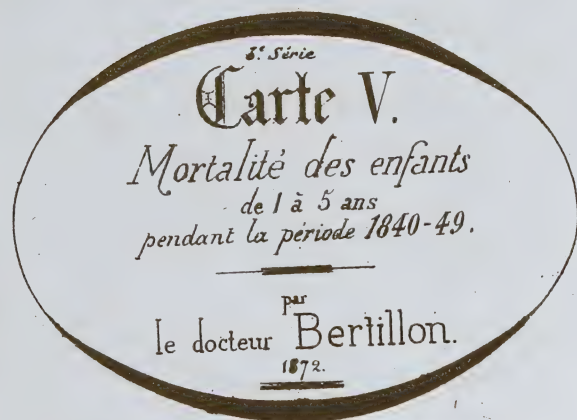 3e Série
Carte V.
Mortalité des enfants
de 1 à 5 ans
pendant la période 1840-49.
par
le docteur Bertillon.
1872.